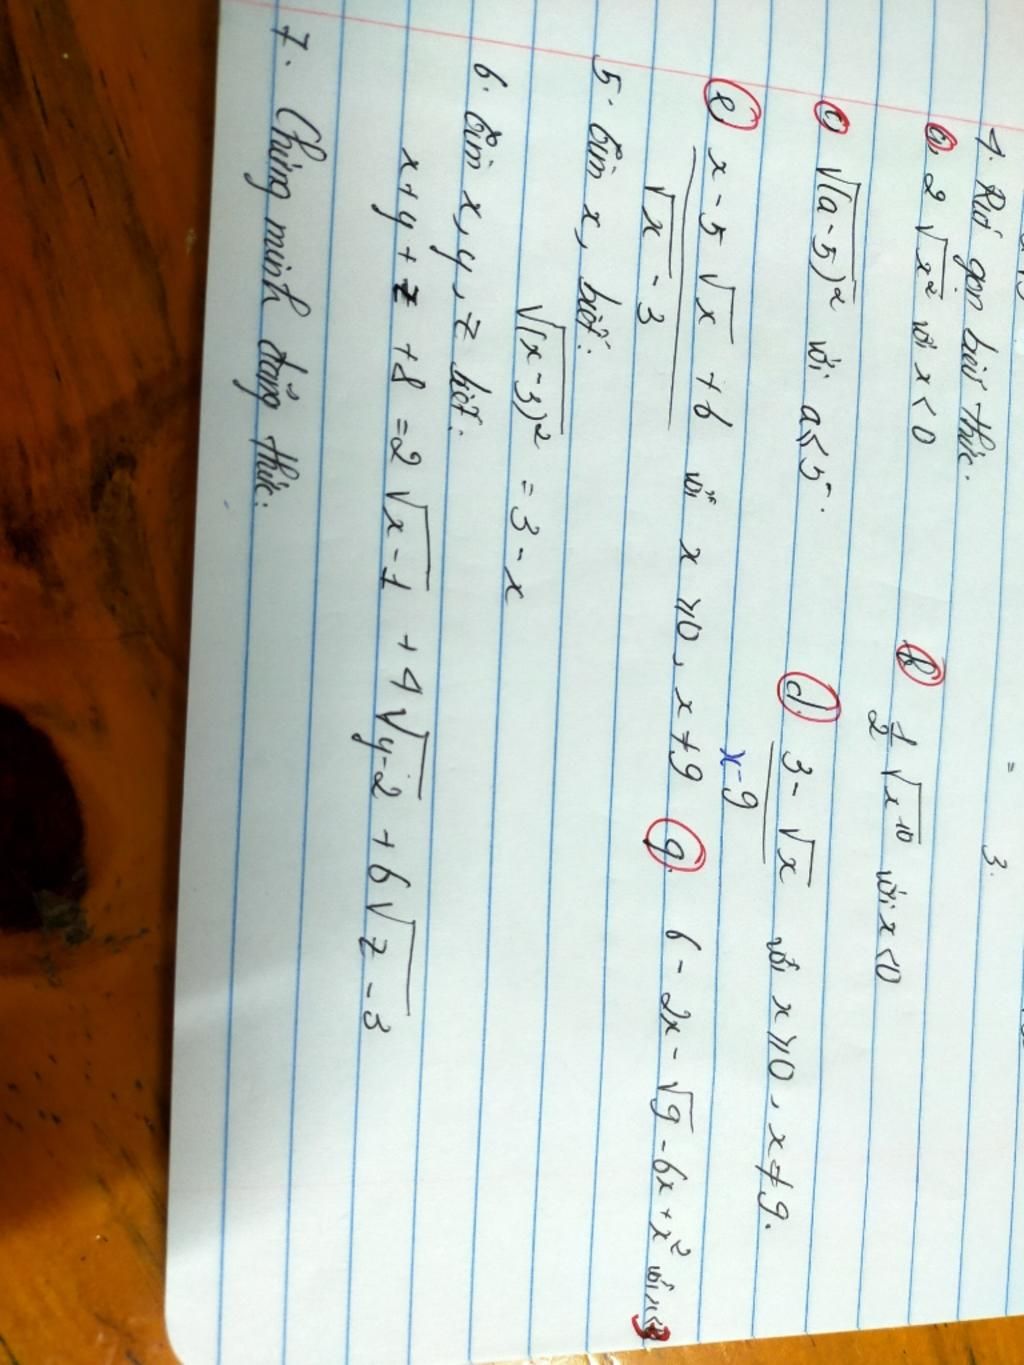 = 3.
4. Rút gọn biểu thức.
a, 2√x² với x < 0
b, 1/2 √x¹⁰ với x < 0
c, √(a-5)² với a ≤ 5.
d, (3 - √x)/(x-9) với x ≥ 0, x ≠ 9.
e, (x - 5√x + 6)/(√x - 3) với x ≥ 0, x ≠ 9
g, 6 - 2x - √9 - 6x + x² với x < 3
5. tìm x, biết:
√(x-3)² = 3 - x
6. tìm x, y, z biết:
x + y + z + 8 = 2√x-1 + 4√y-2 + 6√z-3
7. Chứng minh đẳng thức: